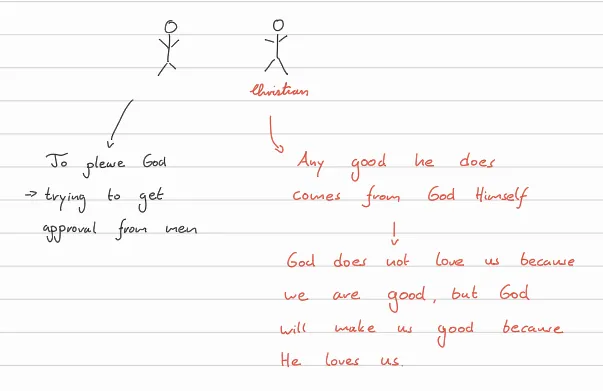 Christian
To please God
→ trying to get
approval from men
Any good he does
comes from God Himself
God does not love us because
we are good, but God
will make us good because
He loves us.